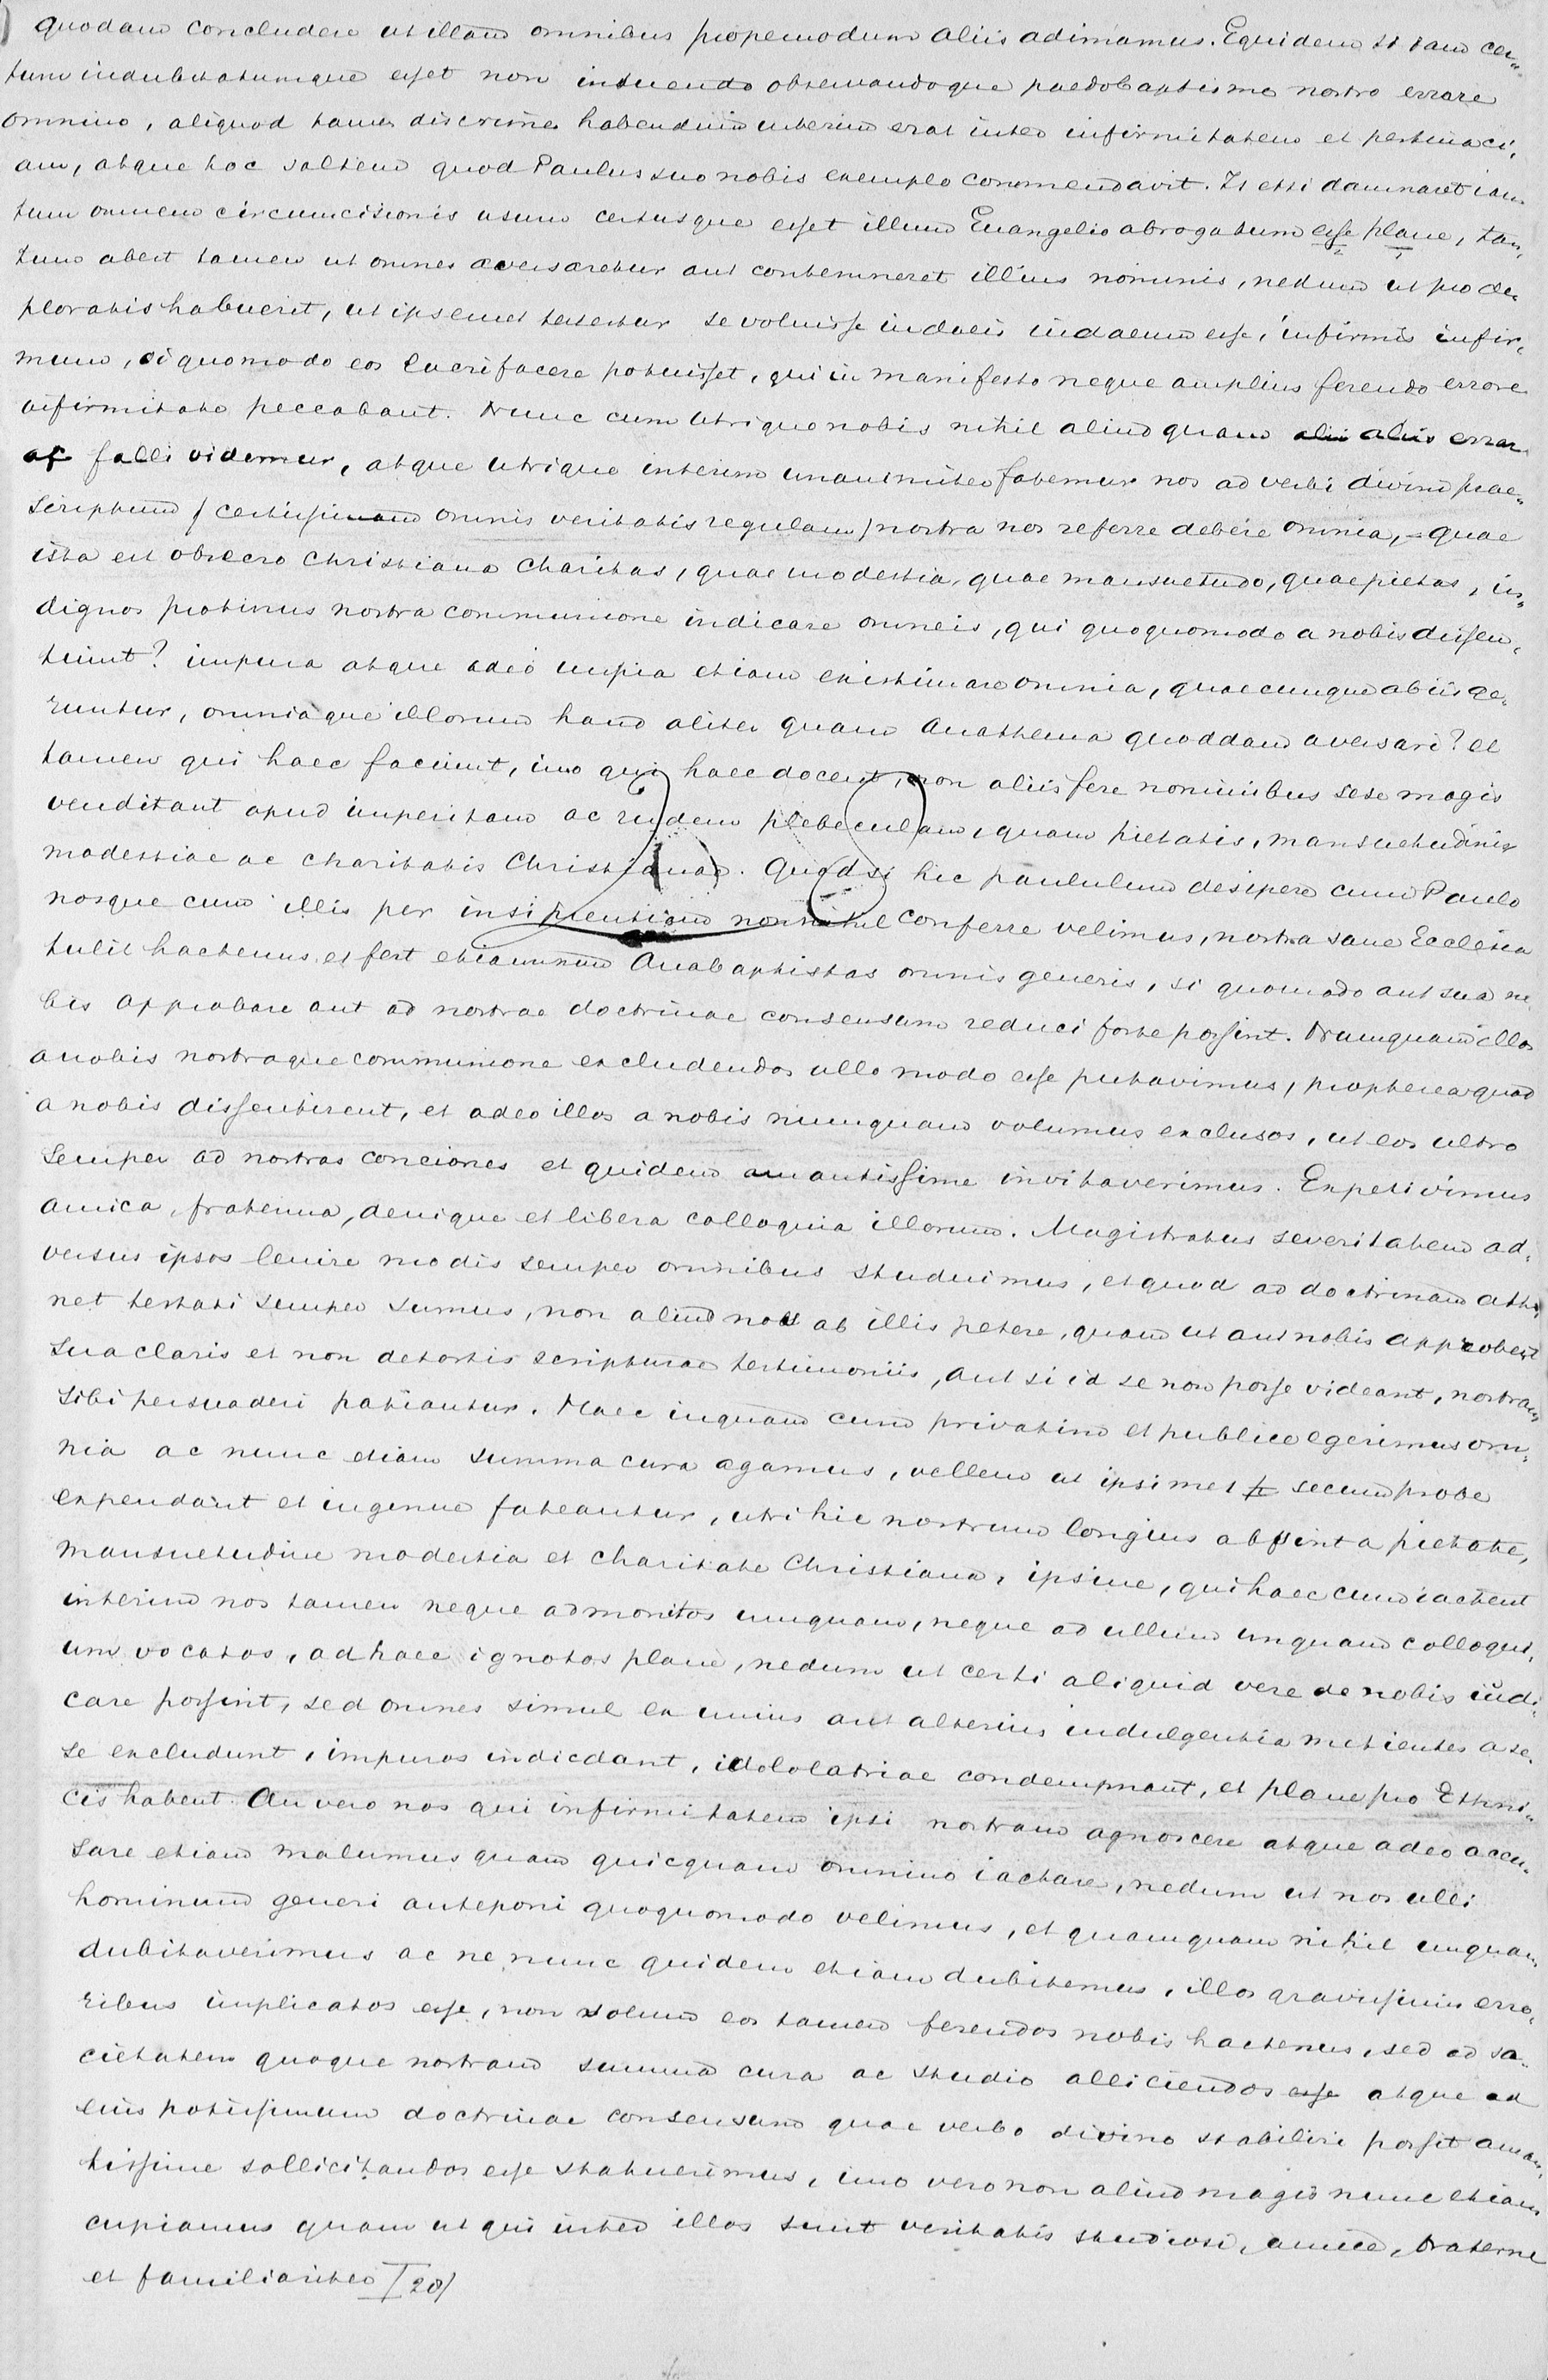 quodam concludere ut illam omnibus propemodum aliis adimamus. Equidem si tam cer„
tum indubitatumque esset nos intuendo observandoque paedobaptismo nostro errare
omnino, aliquod tamen discrimen habendum interim erat inter infirmitatem et pertinaci„
am, atque hoc saltem quod Paulus suo nobis exemplo commendavit. Is etsi damnaret iam
tum omnem circumcisionis usum certusque esset illum Euangelio abrogatum esse plane, tan„
tum abest tamen ut omnes aversaretur aut contemneret illius nominis, nedum ut pro de„
ploratis habuerit, ut ipsemet testetur se voluisse iudaeis iudaeum esse, infirmis infir„
mum, si quomodo eos lucrifacere potuisset, qui in manifesto neque amplius ferendo errore
infirmitate peccabant. Nunc cum utrique nobis nihil aliud quam alii aliis errar
ac falli videmur, atque utrique interim unanimiter fatemur nos ad verbi divini prae„
scriptum / certissimam omnis veritatis regulam / nostra nos referre debere omnia, quae
ista est obsecro Christiana charitas, quae modestia, quae mansuetudo, quae pietas, in„
dignos protinus nostra communione iudicare omneis, qui quoquomodo a nobis dissen„
tiunt? impura atque adeo impia etiam existimare omnia, quaecunque ab iis ge„
runtur, omniaque illorum haud aliter quam anathema quoddam aversari? et
tamen qui haec faciunt, imo qui haec docent, non aliis fere nominibus sese magis
venditant apud imperitam ac rudem plebeculam, quam pietatis, mansuetudinis
modestiae ac charitatis Christianae. Quod si hic paululum desipere cum Paulo
nosque cum illis per insipientiam nonnihil conferre velimus, nostra sane Ecclesia
tulit hactenus et fert etiamnum Anabaptistas omnis generis, si quomodo aut sua no
bis approbare aut ad nostrae doctrinae consensum reduci forte possint. Nunquam illos
a nobis nostraque communione excludendos ullo modo esse putavimus, propterea quod
a nobis dissentirent, et adeo illos a nobis nunquam volumus exclusos, ut eos ultro
semper ad nostras conciones et quidem amantissime invitaverimus. Expetivimus
amica, fraterna, denique et libera colloquia illorum. Magistratus severitatem ad„
versus ipsos lenire modis semper omnibus studuimus, et quod ad doctrinam atti„
net testati semper sumus, non aliud nos ab illis petere, quam ut aut nobis approbent
sua claris et non detortis scripturae testimoniis, aut si id se non posse videant, nostram
sibi persuaderi patiantur. Haec inquam cum privatim et publice egerimus om„
nia ac nunc etiam summa cura agamus, vellem ut ipsimet secum probe
expendant et ingenue fateantur, utri hic nostrum longius absint a pietate,
mansuetudine modestia et charitate Christiana, ipsine, qui haec cum iactent
interim nos tamen neque admonitos unquam, neque ad ullum unquam colloqui„
um vocatos, ad haec ignotos plane, nedum ut certi aliquid vere de nobis iudi„
care possint, sed omnes simul ex unius aut alterius indulgentia metientes a se„
se excludunt, impuros iudicant, idololatriae condempnant, et plane pro Ethni„
cis habent. An vero nos qui infirmitatem ipsi nostram agnoscere atque adeo accu„
sare etiam malumus quam quicquam omnino iactare, nedum ut nos ulli
hominum generi anteponi quoquomodo velimus, et quamquam nihil unquam
dubitaverimus ac ne nunc quidem etiam dubitemus, illos gravissimis erro„
ribus implicatos esse, non solum eos tamen ferendos nobis hactenus, sed ad so„
cietatem quoque nostram summa cura ac studio alliciendos esse atque ad
eius potissimum doctrinae consensum quae verbo divino stabiliri possit aman„
tissime sollicitandos esse statuerimus, imo vero non aliud magis nunc etiam
cupiamus quam ut qui inter illos sunt veritatis studiosi, amice, fraterne
et familiariter [28]